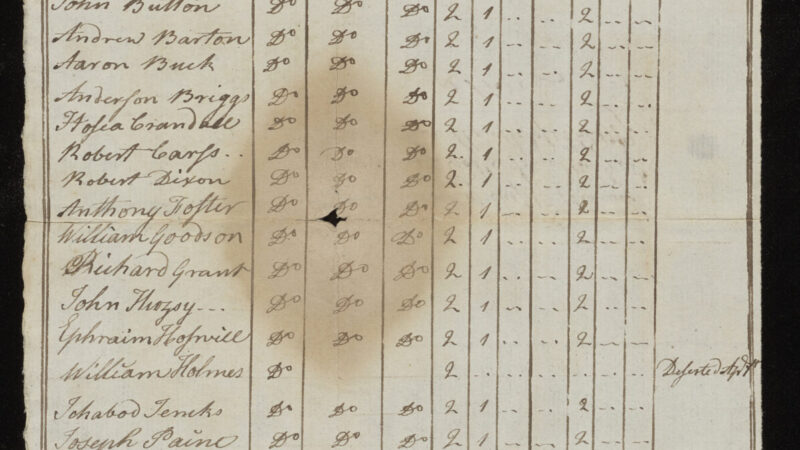 John Button Do Do Do 2 1 .. .. 2 .. ..
Andrew Barton Do Do Do 2 1 .. .. 2 .. ..
Aaron Buck Do Do Do 2 1 .. .. 2 .. ..
Anderson Briggs Do Do Do 2 1 .. .. 2 .. ..
Hosea Crandall Do Do Do 2 1 .. .. 2 .. ..
Robert Carss .. Do Do Do 2. 1 .. .. 2 .. ..
Robert Dixon Do Do Do 2. 1 .. .. 2 .. ..
Anthony Foster Do Do Do 2 1 .. .. 2 .. ..
William Goodson Do Do Do 2 1 .. .. 2 .. ..
Richard Grant Do Do Do 2 1 .. .. 2 .. ..
John Do Do Do 2 1 .. .. 2 .. ..
Ephraim Hoswill Do Do Do 2 1 .. .. 2 .. ..
William Holmes Do 2 .. .. .. .. .. .. Deserted
Ichabod Jencks Do Do Do 2 1 .. .. 2 .. ..
Joseph Paine Do Do Do 2 1 .. .. 2 .. ..